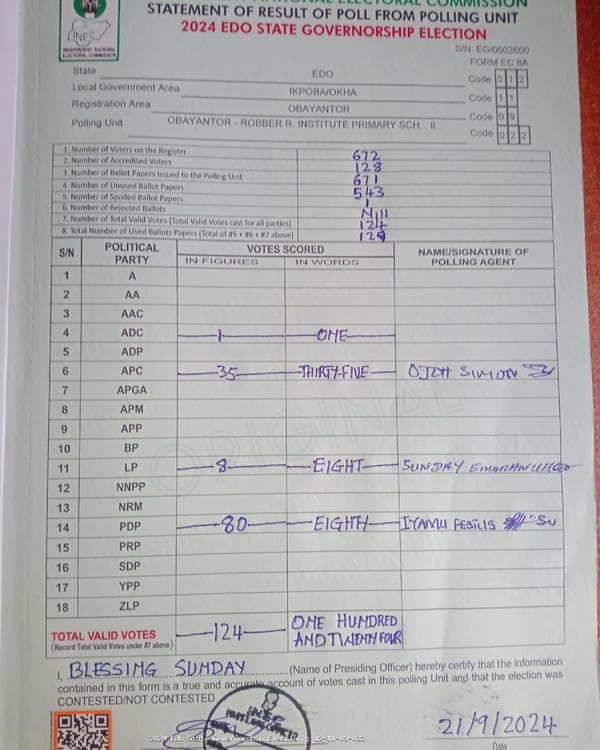 STATEMENT OF RESULT OF POLL FROM POLLING UNIT
2024 EDO STATE GOVERNORSHIP ELECTION
INEC
INDEPENDENT NATIONAL ELECTORAL COMMISSION
S/N: EG/0002600
FORM EC 8A
State EDO Code 0 1 2
Local Government Area IKPOBA/OKHA Code 1 1
Registration Area OBAYANTOR Code 0 9
Polling Unit OBAYANTOR - ROBBER R. INSTITUTE PRIMARY SCH. II Code 0 2 2
1. Number of Voters on the Register 672
2. Number of Accredited Voters 128
3. Number of Ballot Papers Issued to the Polling Unit 671
4. Number of Unused Ballot Papers 543
5. Number of Spoiled Ballot Papers 1
6. Number of Rejected Ballots Nill
7. Number of Total Valid Votes (Total Valid Votes cast for all parties) 124
8. Total Number of Used Ballots Papers (Total of #5 + #6 + #7 above)
S/N POLITICAL PARTY VOTES SCORED NAME/SIGNATURE OF POLLING AGENT
IN FIGURES IN WORDS
1 A
2 AA
3 AAC
4 ADC 1 ONE
5 ADP
6 APC 35 THIRTY-FIVE OJDH SIMON
7 APGA
8 APM
9 APP
10 BP
11 LP 8 EIGHT SUNDAY
12 NNPP
13 NRM
14 PDP 80 EIGHTH
15 PRP
16 SDP
17 YPP
18 ZLP
TOTAL VALID VOTES 124 ONE HUNDRED
(Record Total Valid Votes under #7 above) AND TWENTY FOUR
I, BLESSING SUNDAY (Name of Presiding Officer) hereby certify that the information
contained in this form is a true and accurate account of votes cast in this polling Unit and that the election was
CONTESTED/NOT CONTESTED
2024 Edo State Governorship Election - 12-11-09-022
21/9/2024
Date